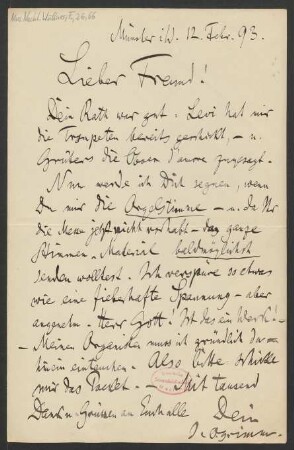 Münster i/W. 12. Febr. 93.
Lieber Freund!
Dein Rath war gut. Levi hat mir
die Trompeten bereits geschickt, – u.
Grüters die Oboen d'amore zugesagt. –
Nun werde ich Dich segnen, wenn
Du mir die Orgelstimme – u. da Ihr
die Messe jetzt nicht vorhabt – das ganze
Stimmen-Material baldmöglichst
senden wolltest. Ich verspüre so etwas
wie eine fieberhafte Spannung – aber
angenehm. Herr Gott! Ist das ein Werk! –
– Meinen Organisten muss ich gründlich da
hinein eintauchen. Also bitte schicke
mir das Packet. – Mit tausend
Dank u. Grüssen an Euch alle Dein